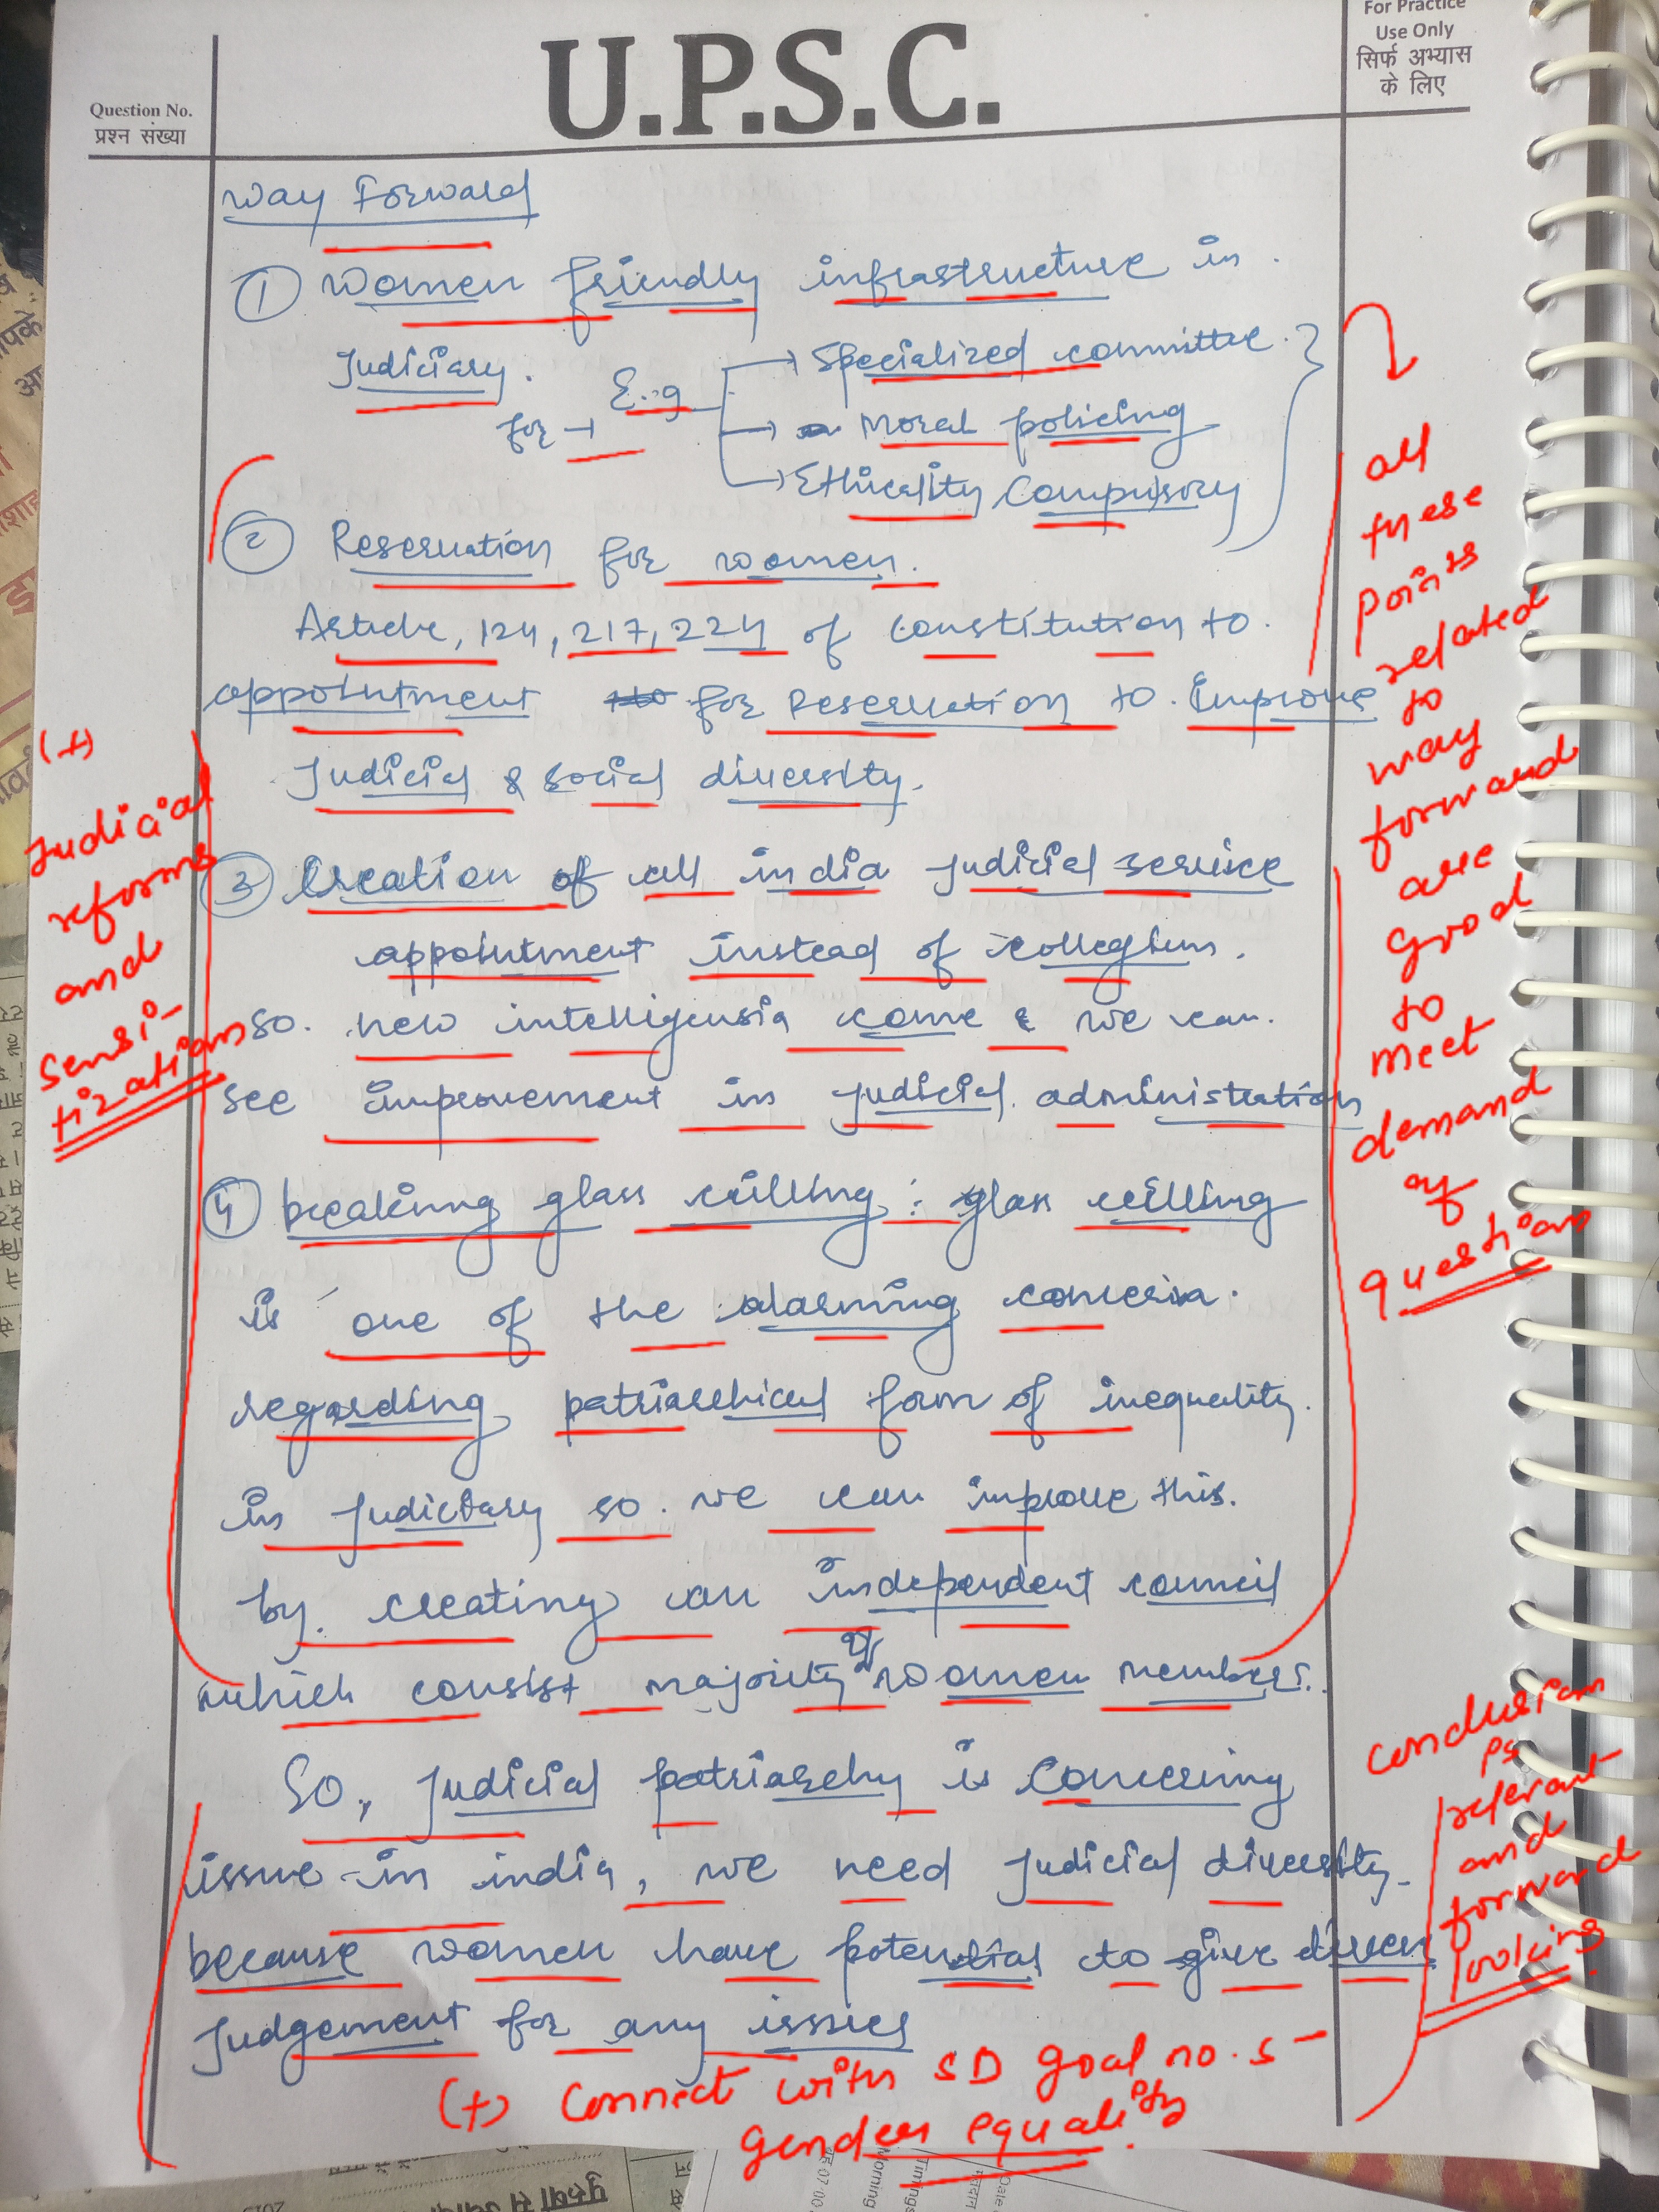 For Practice
Use Only
सिर्फ अभ्यास
के लिए
U.P.S.C.
Question No.
प्रश्न संख्या
Way Forward
① Women friendly infrastructure in
Judiciary.
for → E.g
→ Specialized committee.
→ Moral policing
→ Ethicality Compulsory
② Reservation for women.
Article, 124, 217, 224 of constitution to
appointment for Reservation to Improve
Judicial & social diversity.
③ Creation of all india judicial service
appointment instead of collegium.
so. new intelligensia come & we can.
see improvement in judicial administration
④ breaking glass ceilling : glass ceilling
is one of the alarming concern.
regarding patriarchical form of inequality.
in judiciary so. we can improve this.
by. creating an independent council
which consist majority of women members.
So, judicial patriarchy is concering
issue in india, we need judicial diversity
because women have potential to give divers
judgement for any issues
(+)
Judicial
reforms
and
sensi-
tizations
all
these
points
related
to
way
forward
are
good
to
meet
demand
of
questions
conclusion
is
relevant
and
forward
looking
(+) connect with SD goal no. 5 -
gender equality.